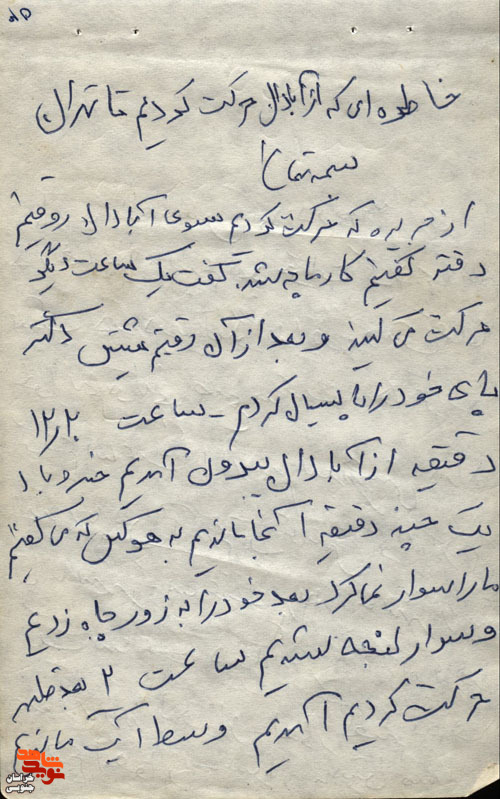 خاطره ای که از آبادان حرکت کردیم تا تهران
بسمه تعالی
از جزیره که حرکت کردیم بسوی آبادان رفتیم
دفتر گفتیم کار ما چه شد. گفت یک ساعت دیگر
حرکت می کنید و بعد از آن رفتیم پیش دکتر
پای خود را پانسمان کردم - ساعت ۱۲
دقیقه از آبادان بیرون آمدیم خسروباد
یک چند دقیقه آنجا ماندیم به هرکس که می گفتیم
ما را سوار نمی‌کرد بعد خود را به زور جا زدیم
و سوار لنجه شدیم ساعت ۲ بعد ظهر
حرکت کردیم آمدیم وسط آب ماندیم
شاهد
نوید
خراسان
جنوبی